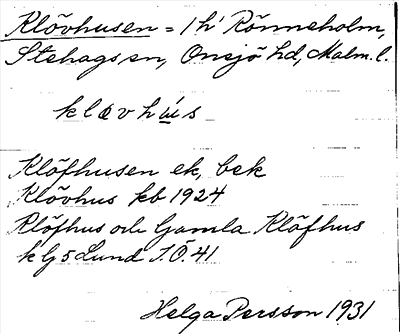 Klövhusen = 1 h' Rönneholm,
Stehags sn, Onsjö hd, Malm. l.
kløvhús
Klöfhusen ek, bek
Klövhus kb 1924
Klöfhus och Gamla Klöfhus
k lj 5 Lund S.Ö. 41
Helga Persson 1931